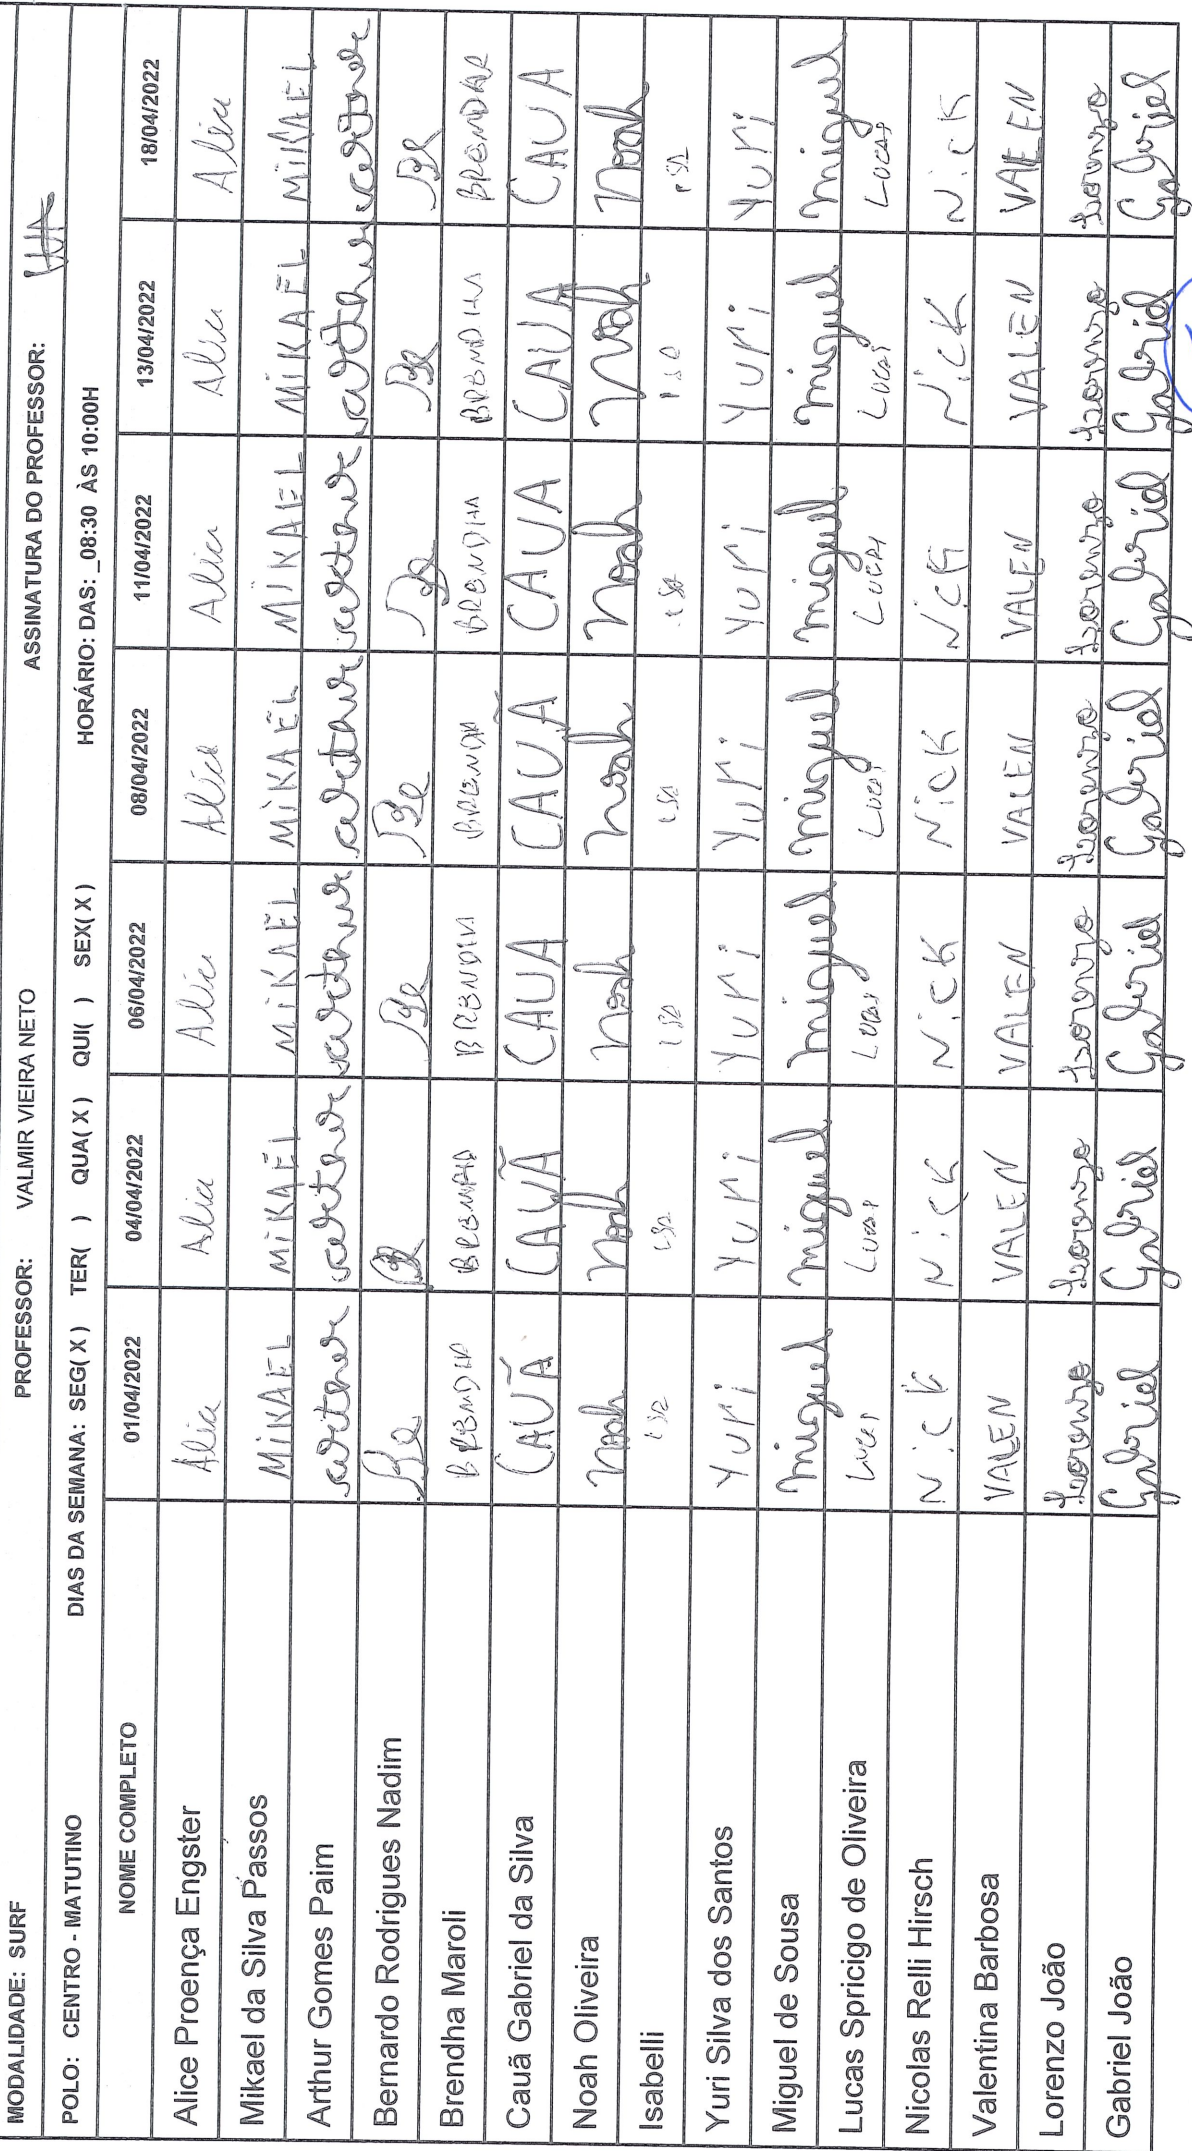 MODALIDADE: SURF PROFESSOR: VALMIR VIEIRA NETO ASSINATURA DO PROFESSOR:
POLO: CENTRO - MATUTINO DIAS DA SEMANA: SEG( X ) TER( ) QUA( X ) QUI( ) SEX( X ) HORÁRIO: DAS: _08:30 ÀS 10:00H
NOME COMPLETO 01/04/2022 04/04/2022 06/04/2022 08/04/2022 11/04/2022 13/04/2022 18/04/2022
Alice Proença Engster Alice Alice Alice Alice Alice Alice Alice
Mikael da Silva Passos MIKAEL MIKAEL MIKAEL MIKAEL MIKAEL MIKAEL MIKAEL
Arthur Gomes Paim
Bernardo Rodrigues Nadim Be Be Be Be Be Be Be
Brendha Maroli
Cauã Gabriel da Silva CAUÃ CAUÃ CAUA CAUÃ CAUA CAUA CAUA
Noah Oliveira Noah Noah Noah Noah Noah Noah Noah
Isabelli
Yuri Silva dos Santos Yuri Yuri Yuri Yuri Yuri Yuri Yuri
Miguel de Sousa miguel miguel miguel miguel miguel miguel miguel
Lucas Spricigo de Oliveira
Nicolas Relli Hirsch NiCK NiCK NiCK NiCK NiCK NiCK NiCK
Valentina Barbosa VALEN VALEN VALEN VALEN VALEN VALEN VALEN
Lorenzo João Lorenzo Lorenzo Lorenzo Lorenzo Lorenzo Lorenzo Lorenzo
Gabriel João Gabriel Gabriel Gabriel Gabriel Gabriel Gabriel Gabriel